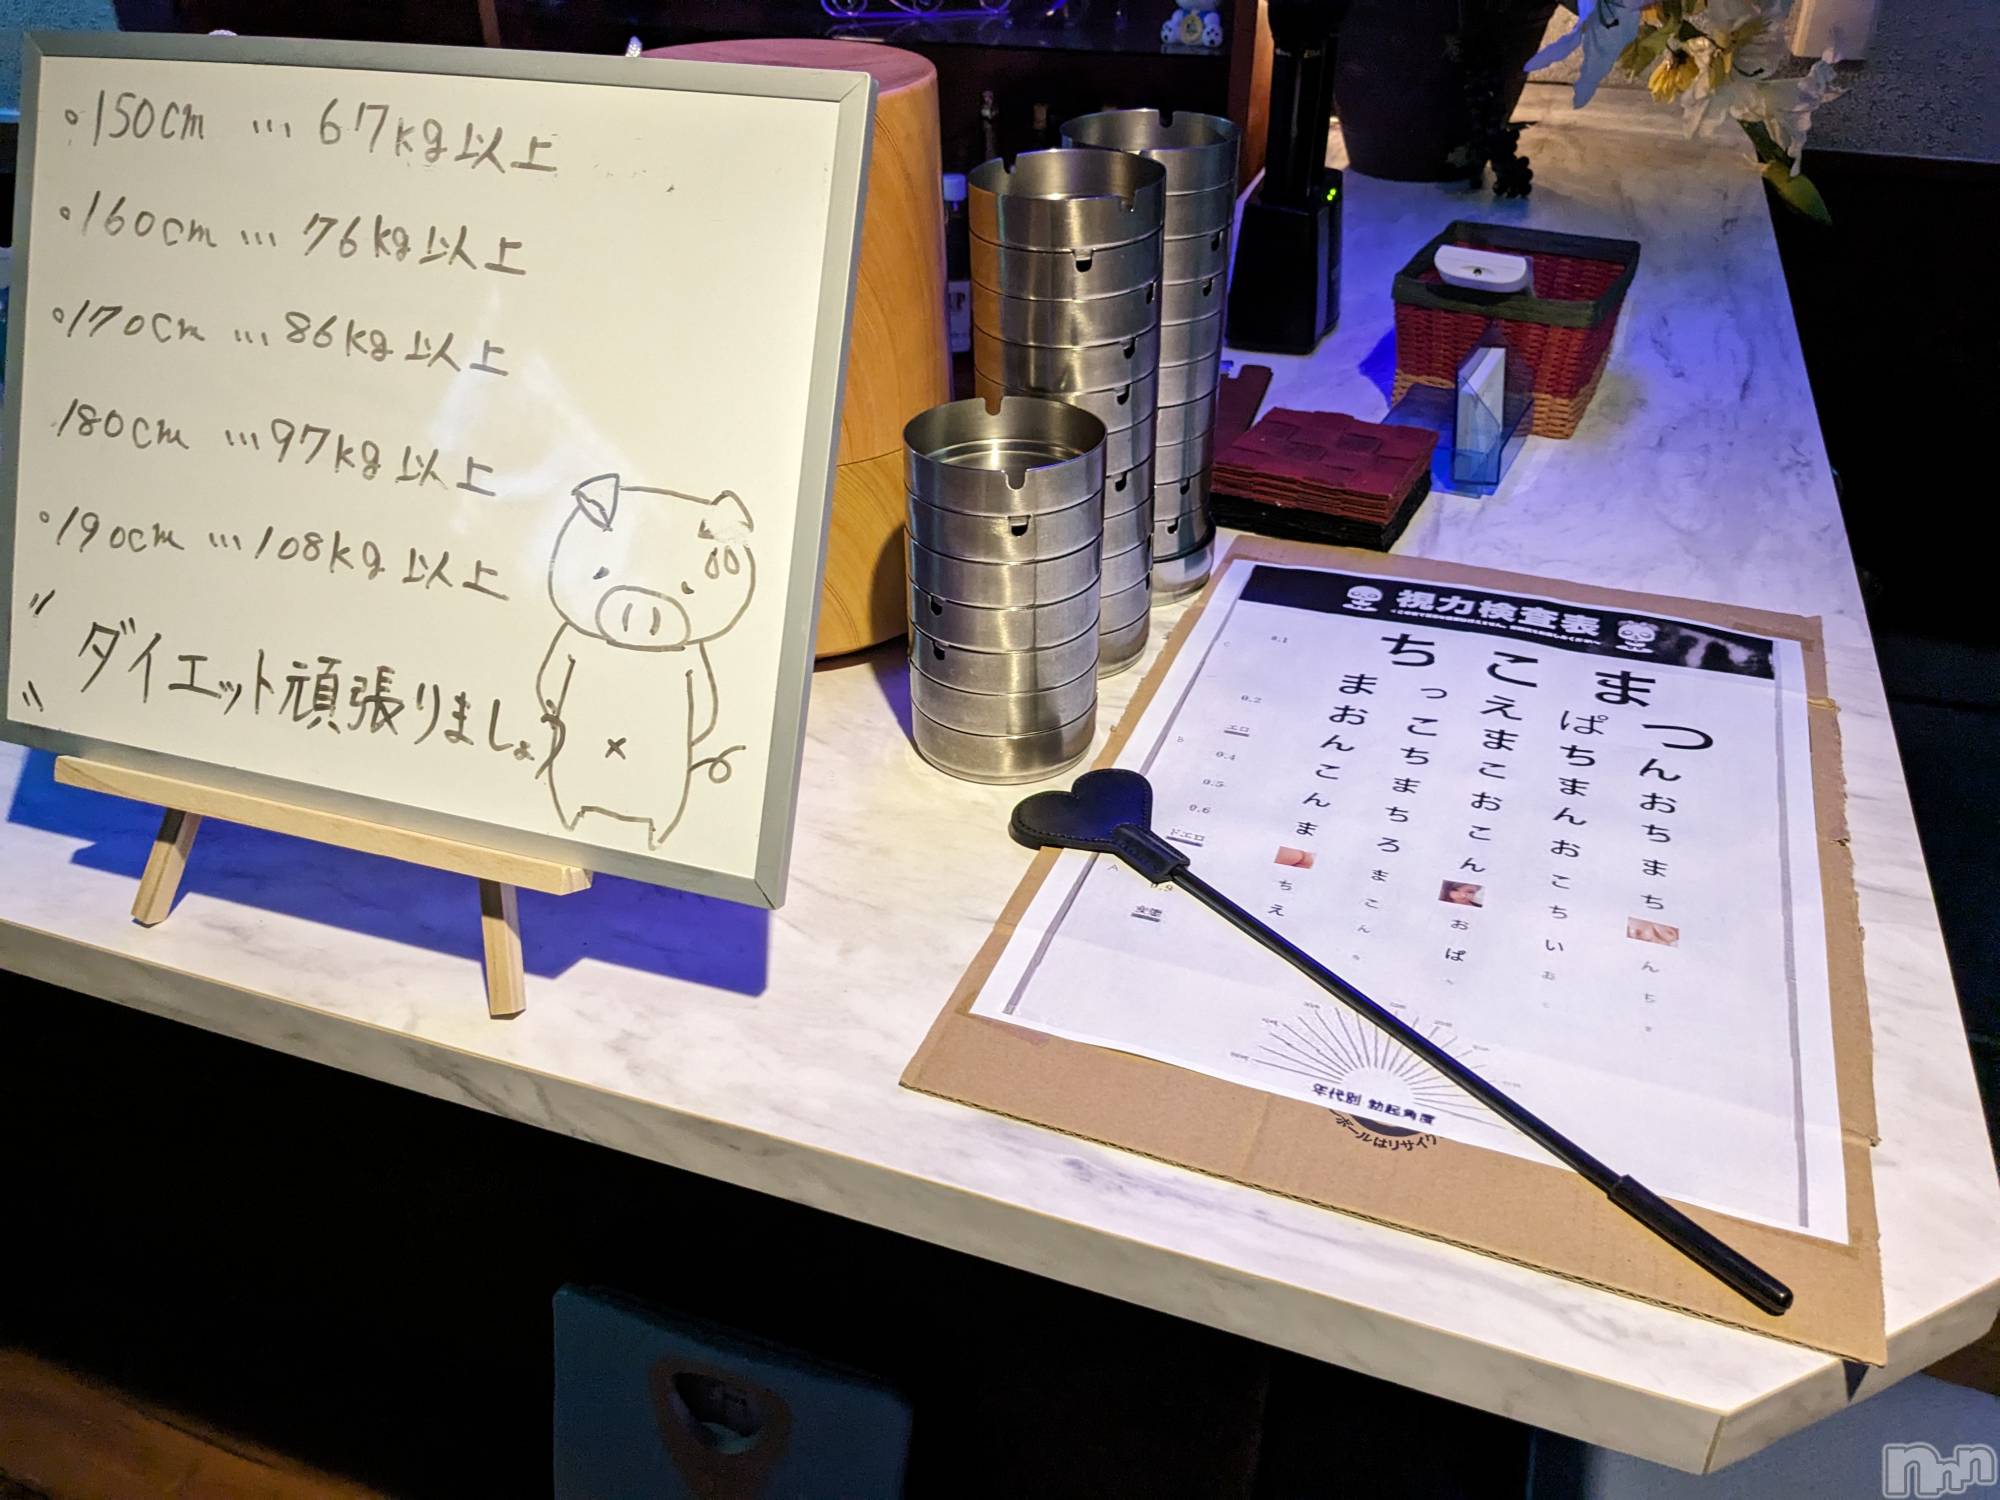 ・150cm … 67kg以上
・160cm … 76kg以上
・170cm … 86kg以上
180cm … 97kg以上
・190cm … 108kg以上
"ダイエット頑張りましょう"
視力検査表
まこち
つんおちまち
んち
ぱちまんおこちいお
えまこおこん
おぱ
っこちまちろまこん
まおんこんま
ちえ
0.1
0.2
エロ
0.4
0.5
0.6
ドエロ
0.9
C
B
A
年代別 勃起角度
ボールはリサイク
nnn